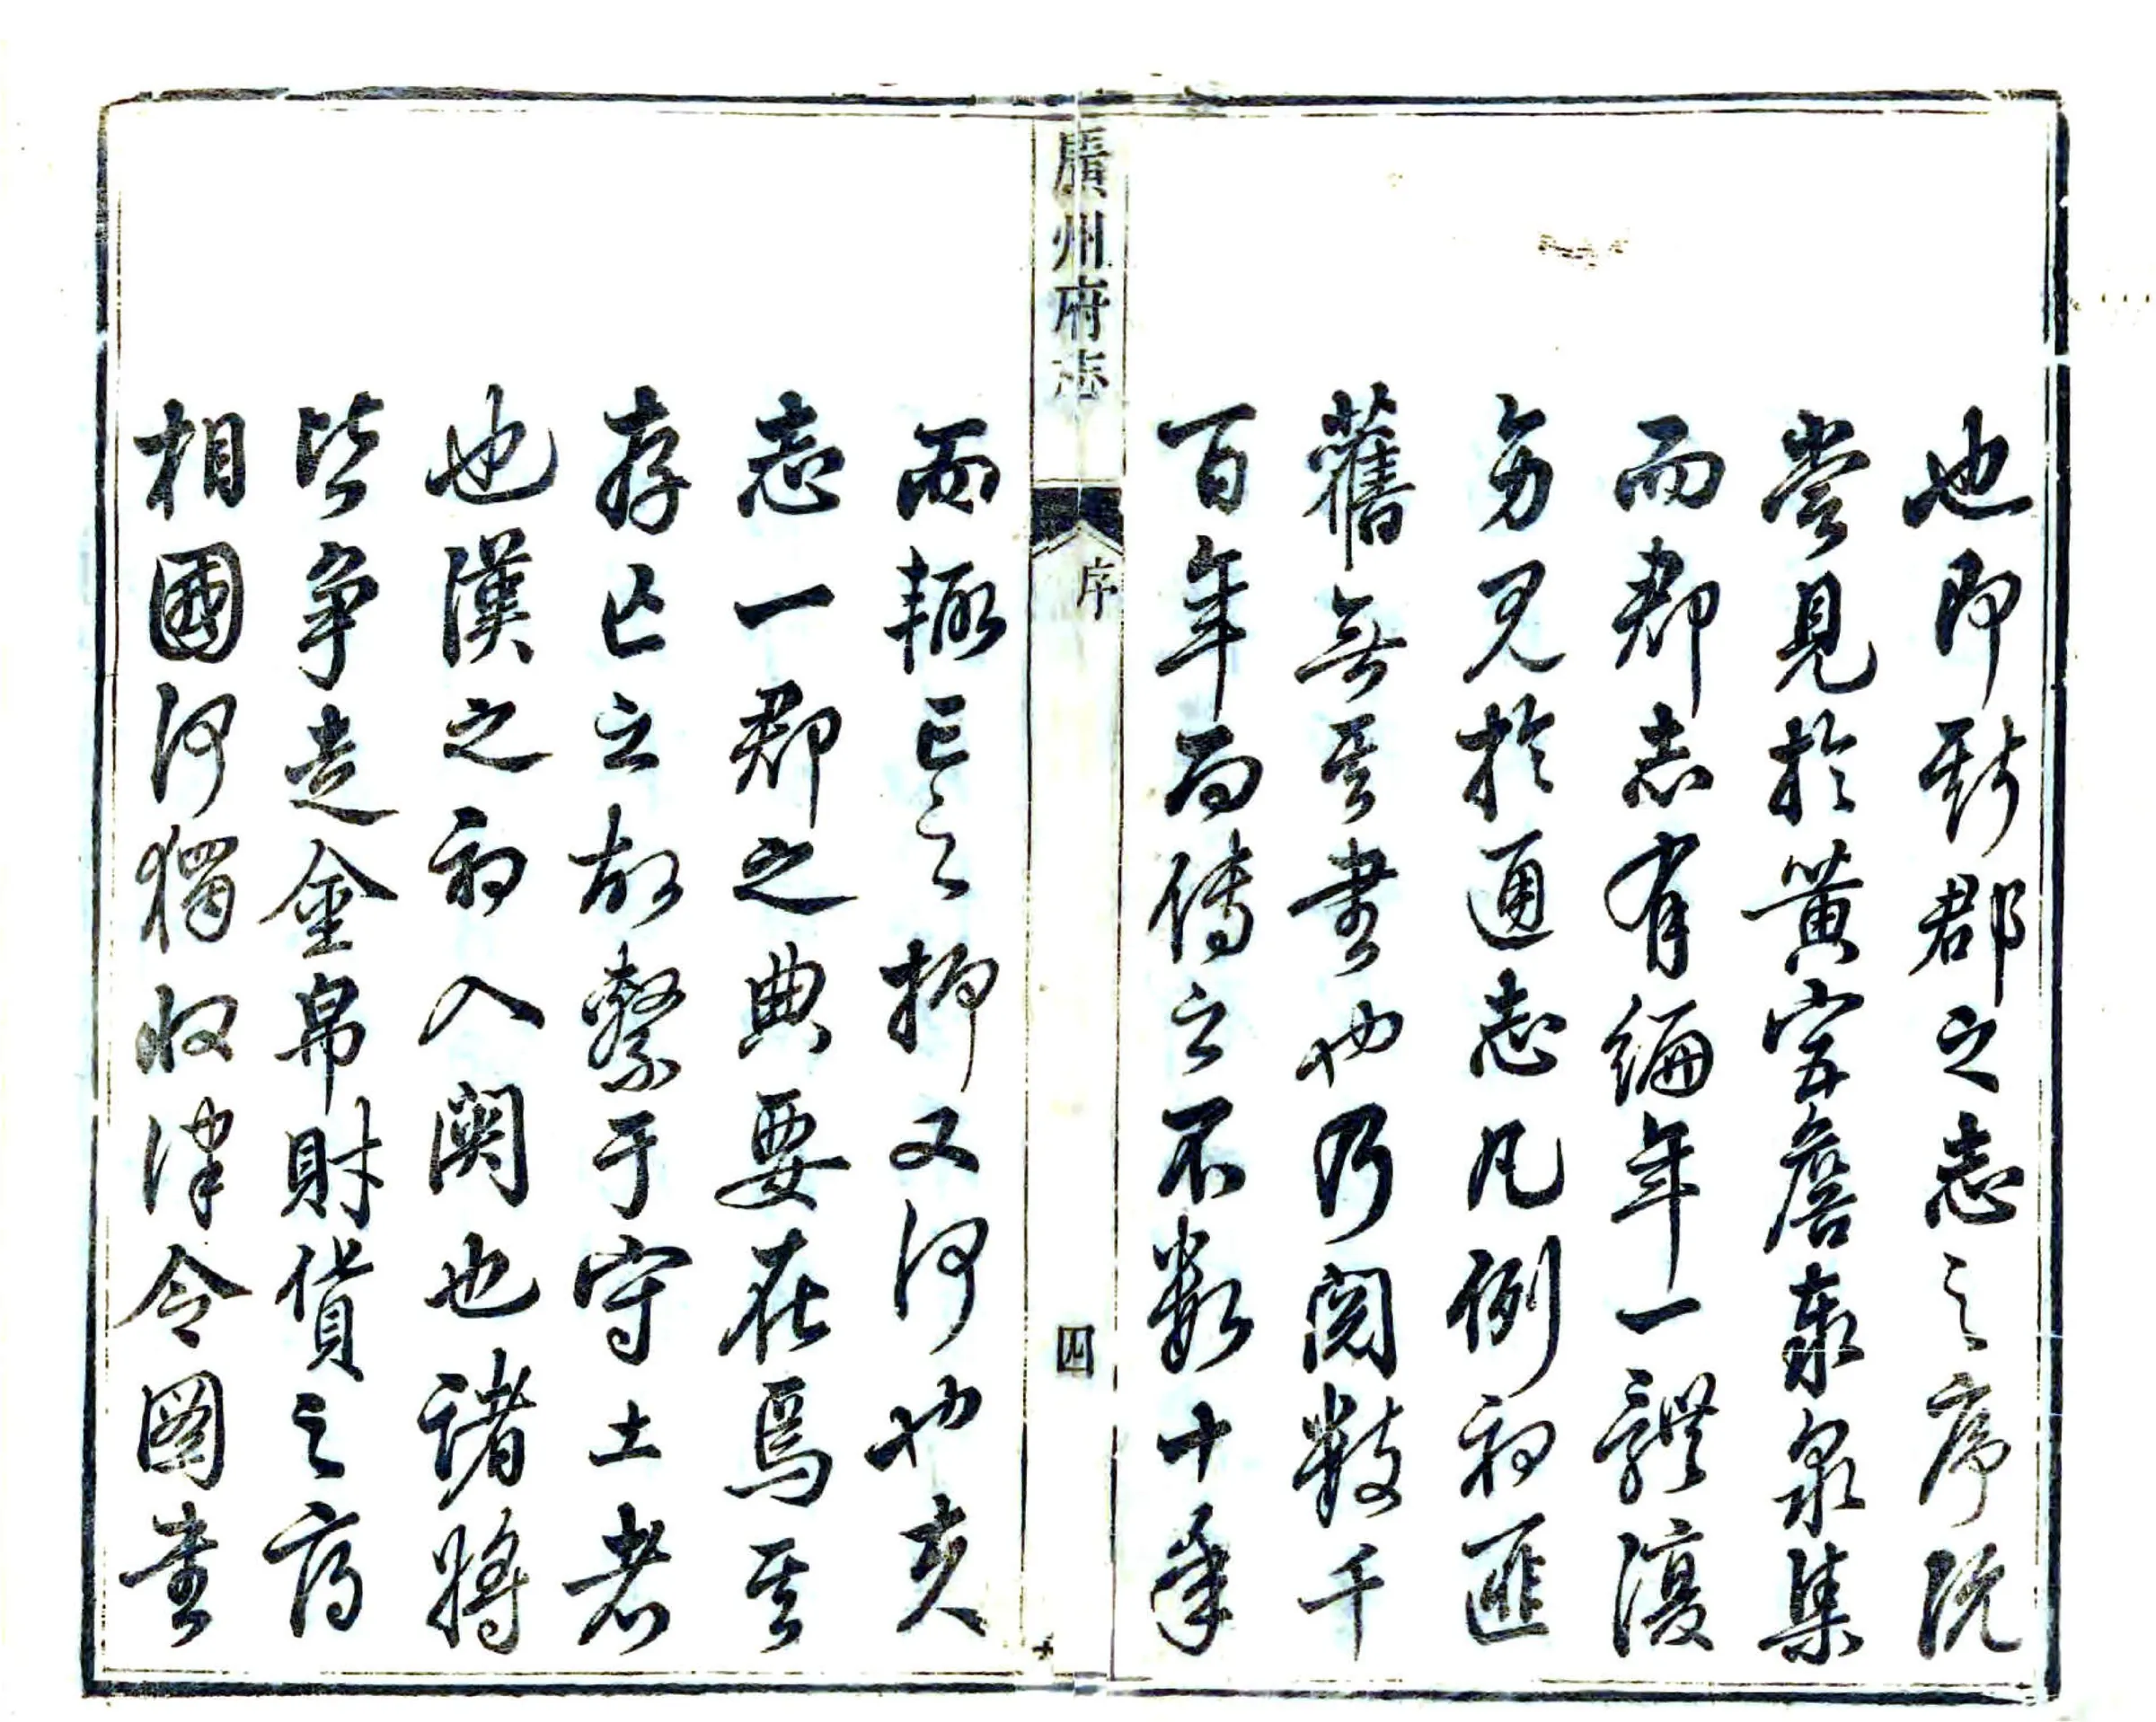 也即斯郡之志之序況
嘗見於黃宮詹泰泉集
而郡志有編年一體復
旁見於通志凡例初匪
舊無其書也乃閱數千
百年而傳之不數十年
廣州府志
序
四
而輒亡之抑又何也夫
志一郡之典要在焉其
存亡之故繫于守土者
也漢之初入関也諸將
皆爭走金帛財貨之府
相國何獨收律令圖書